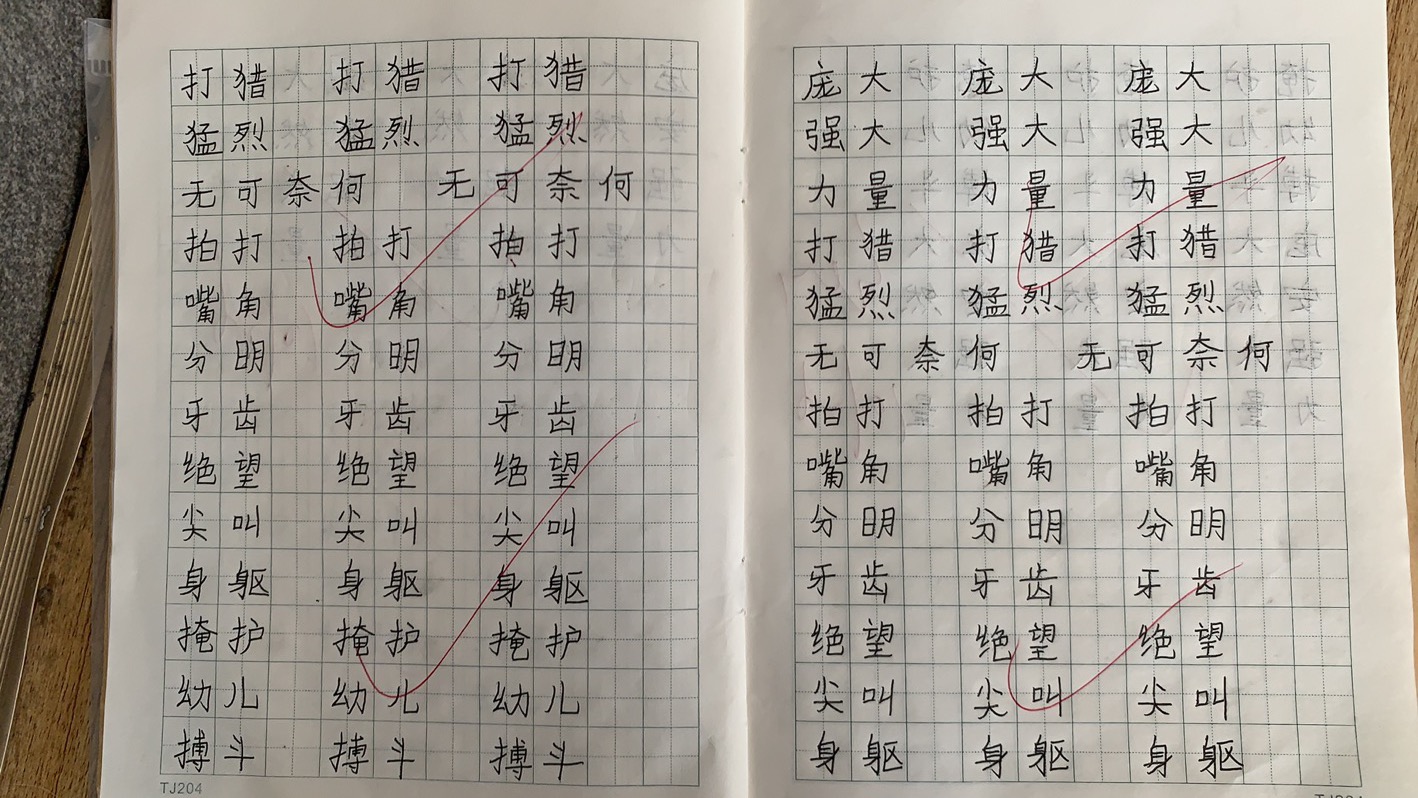 打猎 打猎 打猎
猛烈 猛烈 猛烈
无可奈何 无可奈何
拍打 拍打 拍打
嘴角 嘴角 嘴角
分明 分明 分明
牙齿 牙齿 牙齿
绝望 绝望 绝望
尖叫 尖叫 尖叫
身躯 身躯 身躯
掩护 掩护 掩护
幼儿 幼儿 幼儿
搏斗 搏斗 搏斗
TJ204
庞大 庞大 庞大
强大 强大 强大
力量 力量 力量
打猎 打猎 打猎
猛烈 猛烈 猛烈
无可奈何 无可奈何
拍打 拍打 拍打
嘴角 嘴角 嘴角
分明 分明 分明
牙齿 牙齿 牙齿
绝望 绝望 绝望
尖叫 尖叫 尖叫
身躯 身躯 身躯